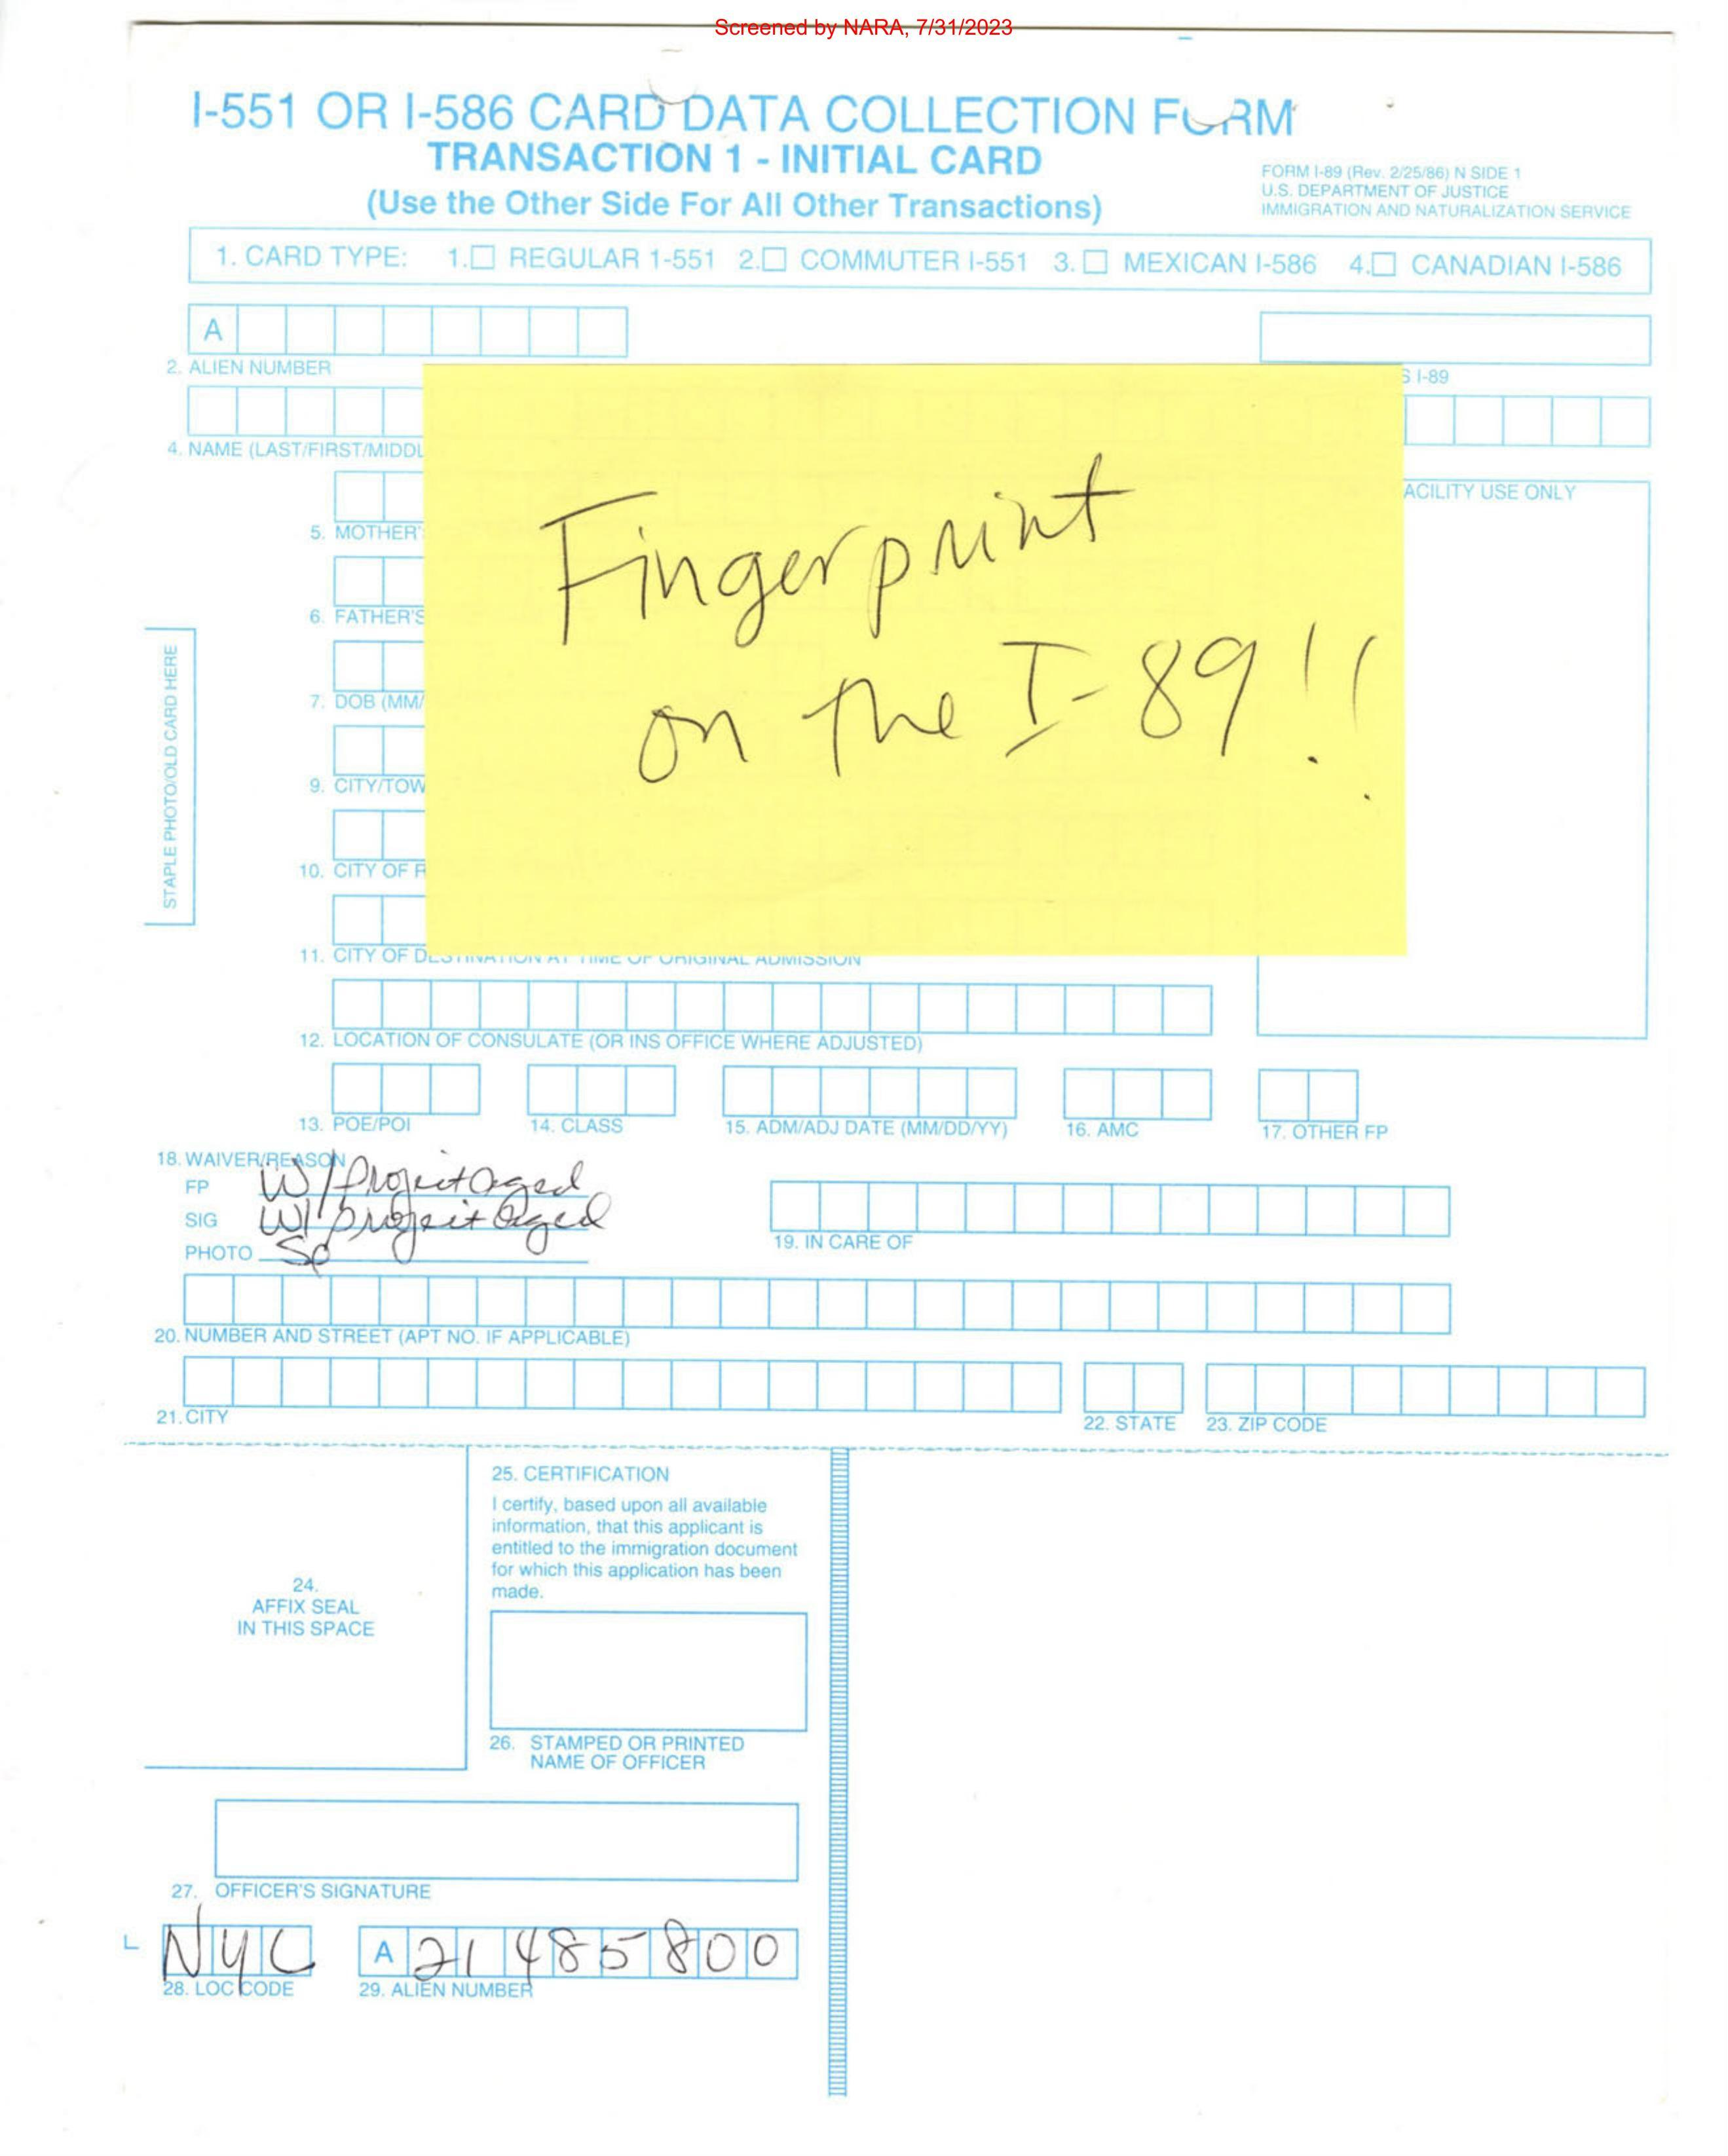 Screened by NARA, 7/31/2023
I-551 OR I-586 CARD DATA COLLECTION FORM
TRANSACTION 1 - INITIAL CARD
(Use the Other Side For All Other Transactions)
FORM I-89 (Rev. 2/25/86) N SIDE 1
U.S. DEPARTMENT OF JUSTICE
IMMIGRATION AND NATURALIZATION SERVICE
1. CARD TYPE: 1. REGULAR 1-551 2. COMMUTER I-551 3. MEXICAN I-586 4. CANADIAN I-586
A
2. ALIEN NUMBER
S I-89
4. NAME (LAST/FIRST/MIDDL
ACILITY USE ONLY
Fingerprint
on the I-89!!
5. MOTHER'
6. FATHER'S
7. DOB (MM/
9. CITY/TOW
10. CITY OF R
11. CITY OF DESTINATION AT TIME OF ORIGINAL ADMISSION
STAPLE PHOTO/OLD CARD HERE
12. LOCATION OF CONSULATE (OR INS OFFICE WHERE ADJUSTED)
13. POE/POI 14. CLASS 15. ADM/ADJ DATE (MM/DD/YY) 16. AMC 17. OTHER FP
18. WAIVER/REASON
FP W/Project aged
SIG W/project aged
PHOTO
19. IN CARE OF
20. NUMBER AND STREET (APT NO. IF APPLICABLE)
21. CITY 22. STATE 23. ZIP CODE
24.
AFFIX SEAL
IN THIS SPACE
25. CERTIFICATION
I certify, based upon all available
information, that this applicant is
entitled to the immigration document
for which this application has been
made.
26. STAMPED OR PRINTED
NAME OF OFFICER
27. OFFICER'S SIGNATURE
NYC A 21 485 800
28. LOC CODE 29. ALIEN NUMBER